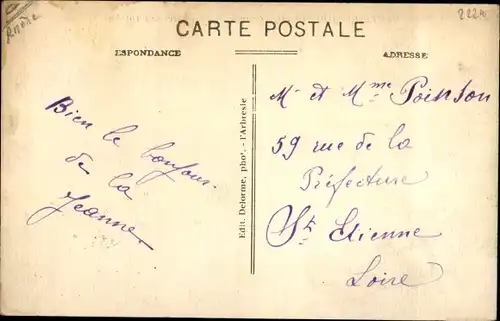 Rhône
CARTE POSTALE
ESPONDANCE
ADRESSE
Bien le bonjour.
de la
Jeanne
Edit. Delorme, pho'. - l'Arbresle
Mr et Mme Poinson
59 rue de la
Préfecture
St Etienne
Loire